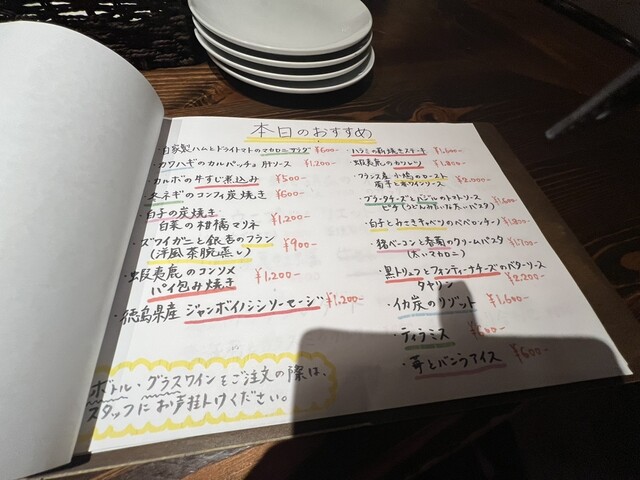 本日のおすすめ
・自家製ハムとドライトマトのマカロニサラダ ¥600-
・カワハギのカルパッチョ 肝ソース ¥1,200-
・カルボの牛すじ煮込み ¥500-
・本ネギのコンフィ炭焼き ¥600-
・白子の炭焼き
白菜の柑橘マリネ ¥1,200-
・ズワイガニと銀杏のフラン
(洋風茶碗蒸し) ¥900-
・蝦夷鹿のコンソメ
パイ包み焼き ¥1,200-
・徳島県産 ジャンボイノシシソーセージ ¥1,200-
ボトル・グラスワインをご注文の際は、
スタッフにお声掛けください。
・ハラミの炭焼きステーキ ¥1,600-
・蝦夷鹿のカツレツ ¥1,800-
・フランス産 小鳩のロースト
菊芋と赤ワインソース ¥2,000-
・ブラータチーズとバジルのトマトソース
ピチ(うどんみたいな太いパスタ) ¥1,600-
・白子とみさきキャベツのペペロンチーノ ¥1,800-
・猪ベーコンと春菊のクリームパスタ
(太いマカロニ) ¥1,700-
・黒トリュフとフォンティーナチーズのバターソース
タヤリン ¥2,200-
・イカ炭のリゾット ¥1,600-
・ティラミス ¥600-
・苺とバニラアイス ¥600-